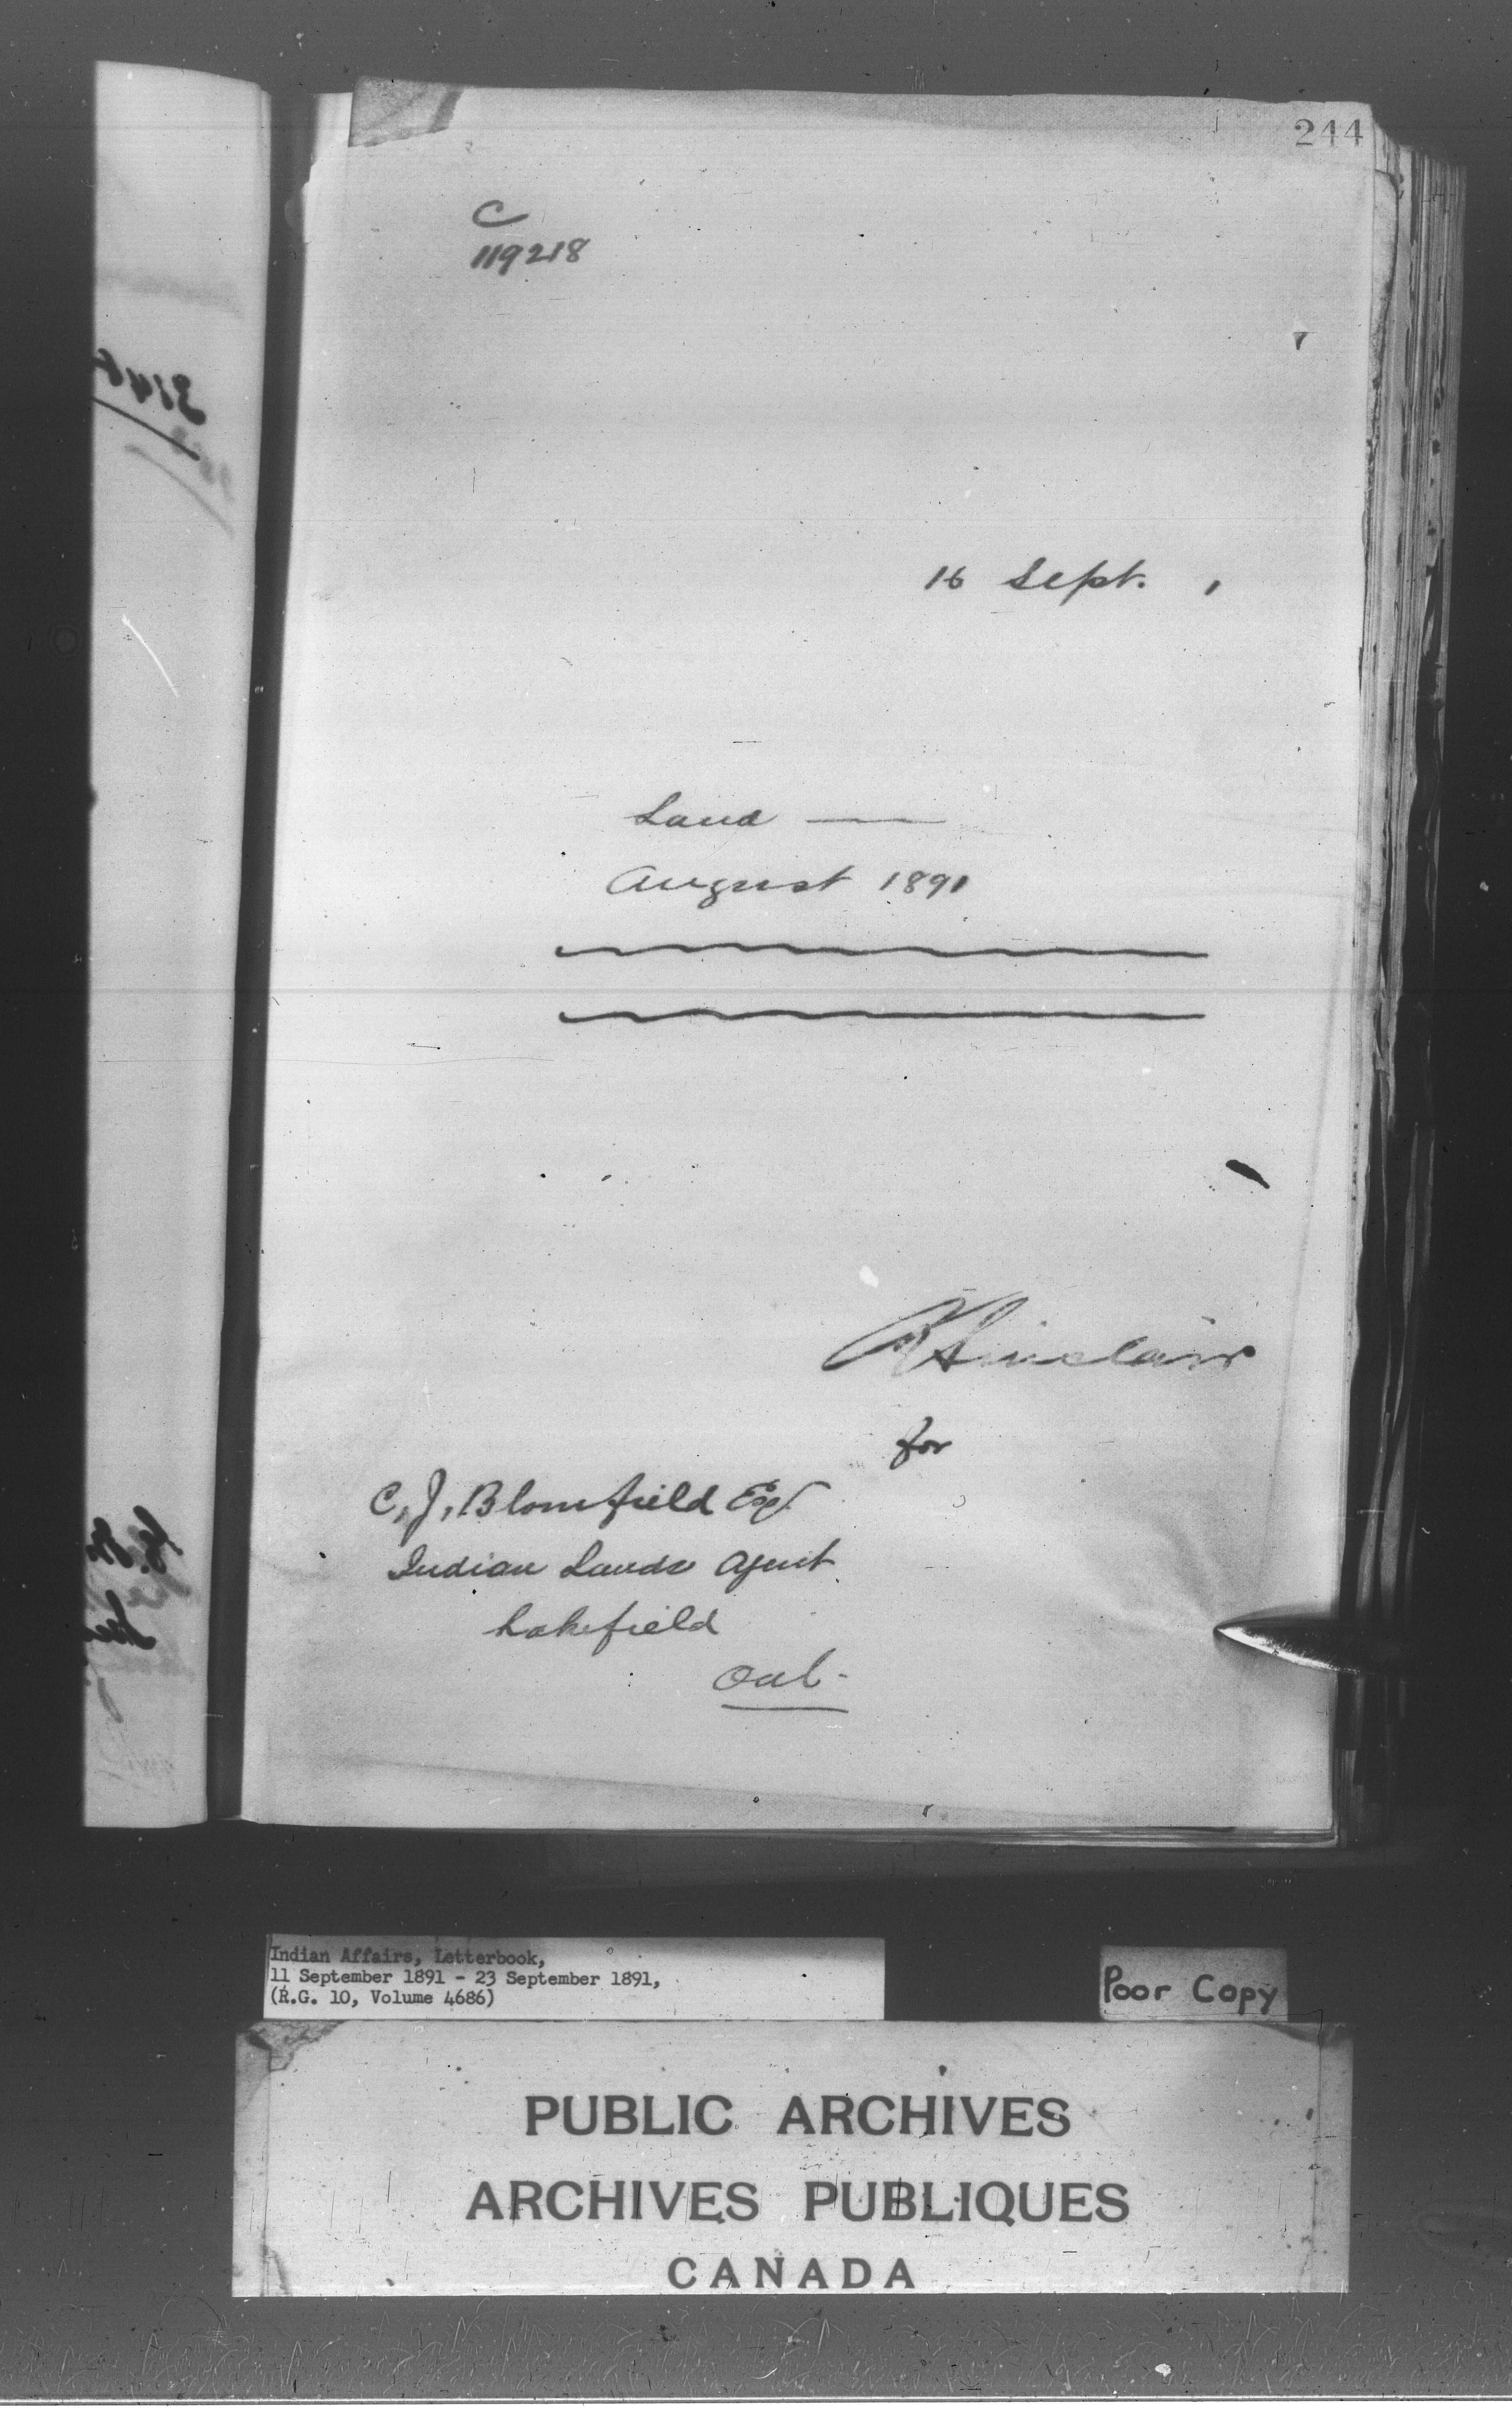 244
C
119218
16 Sept. 1
Land —
August 1891
R Sinclair
for
C. J. Blomfield Esq.
Indian Lands Agent
Lakefield
Ont.
Indian Affairs, Letterbook,
11 September 1891 - 23 September 1891,
(R.G. 10, Volume 4686)
Poor Copy
PUBLIC ARCHIVES
ARCHIVES PUBLIQUES
CANADA